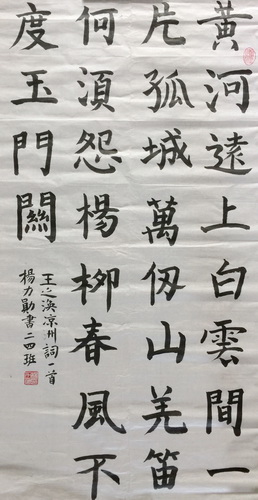 黃河遠上白雲間一
片孤城萬仞山羌笛
何須怨楊柳春風不
度玉門關
王之渙凉州詞一首
楊力勛書二四班